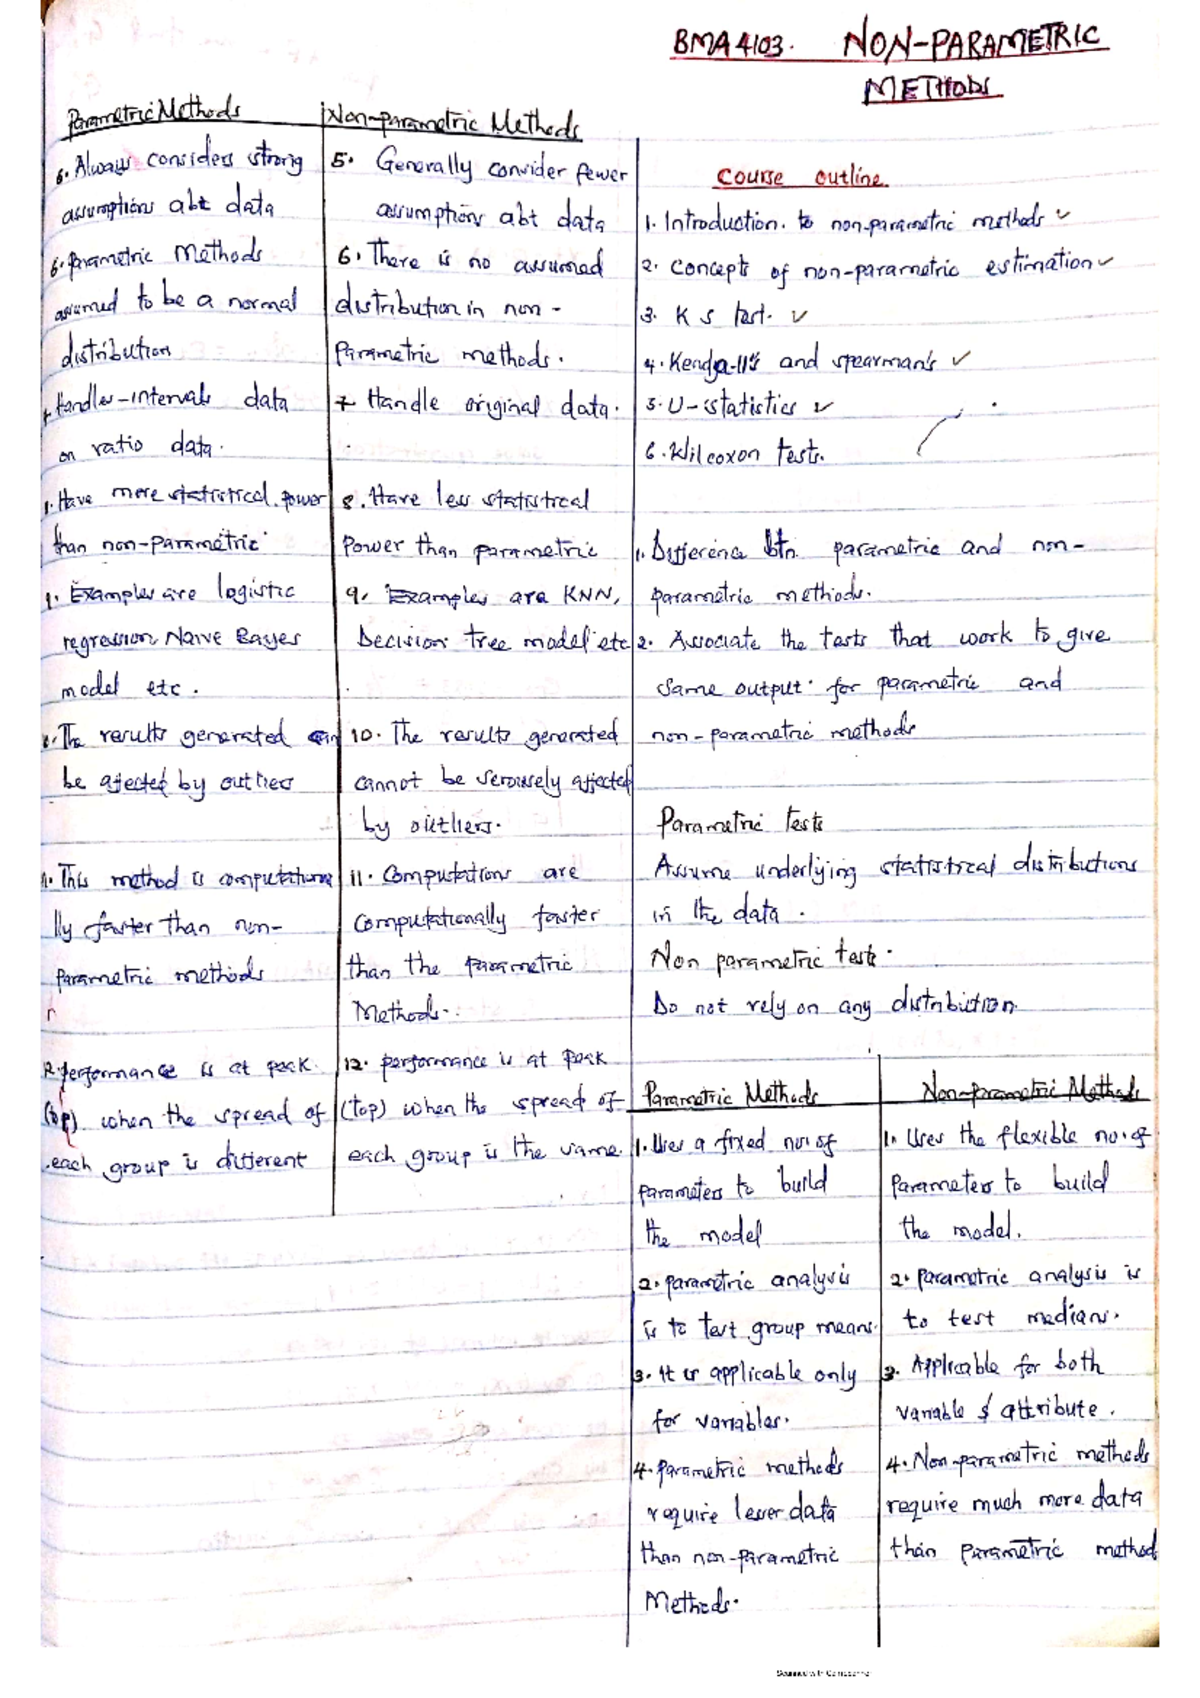 BMA 4103. NON-PARAMETRIC
METHODS
Course outline.
1. Introduction. to non-parametric methods ✓
2. Concepts of non-parametric estimation ✓
3. K S test. ✓
4. Kendall's and spearman's ✓
5. U-statistics ✓
6. Wilcoxon tests.
1. Difference btn parametric and non-
parametric methods.
2. Associate the tests that work to give
same output for parametric and
non-parametric methods
Parametric tests
Assume underlying statistical distributions
in the data.
Non parametric tests.
Do not rely on any distribution
Parametric Methods
1. Uses a fixed no. of
parameters to build
the model
2. parametric analysis
is to test group means.
3. It is applicable only
for variables.
4. parametric methods
require lesser data
than non-parametric
Methods.
Non-parametric Methods
1. Uses the flexible no. of
parameters to build
the model.
2. parametric analysis is
to test medians.
3. Applicable for both
variable & attribute.
4. Non-parametric methods
require much more data
than parametric method
Parametric Methods
Always considers strong
assumptions abt data
6. parametric Methods
assumed to be a normal
distribution
Handles-intervals data
on ratio data.
Have more statistical power
than non-parametric
9. Examples are logistic
regression, Naive Bayes
model etc.
The results generated can
be affected by outliers
This method is computationa
lly faster than non-
parametric methods
12. performance is at peak
(top) when the spread of
each group is different
Non-parametric Methods
5. Generally consider fewer
assumptions abt data
6. There is no assumed
distribution in non-
Parametric methods.
7 Handle original data.
8. Have less statistical
Power than parametric
9. Examples are KNN,
Decision tree model etc
10. The results generated
cannot be serousely affected
by outliers.
11. Computations are
computationally faster
than the parametric
Methods.
12. performance is at peak
(top) when the spread of
each group is the same.
Scanned with CamScanner